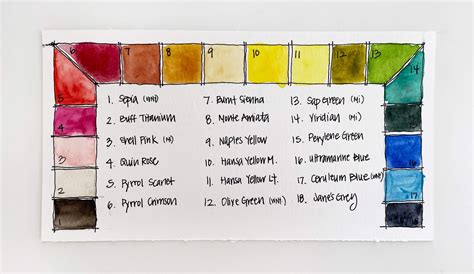 6 7 8 9 10 11 12 13
5
4
3
2
1
1. Sepia (WN)
2. Buff Titanium
3. Shell Pink (Mi)
4. Quin Rose
5. Pyrrol Scarlet
6. Pyrrol Crimson
7. Burnt Sienna
8. Monte Amiata
9. Naples Yellow
10. Hansa Yellow M.
11. Hansa Yellow Lt.
12. Olive Green (WN)
13. Sap Green (Mi)
14. Viridian (Mi)
15. Perylene Green
16. Ultramarine Blue
17. Ceruleum Blue (WN)
18. Jane's Grey
14
15
16
17
18